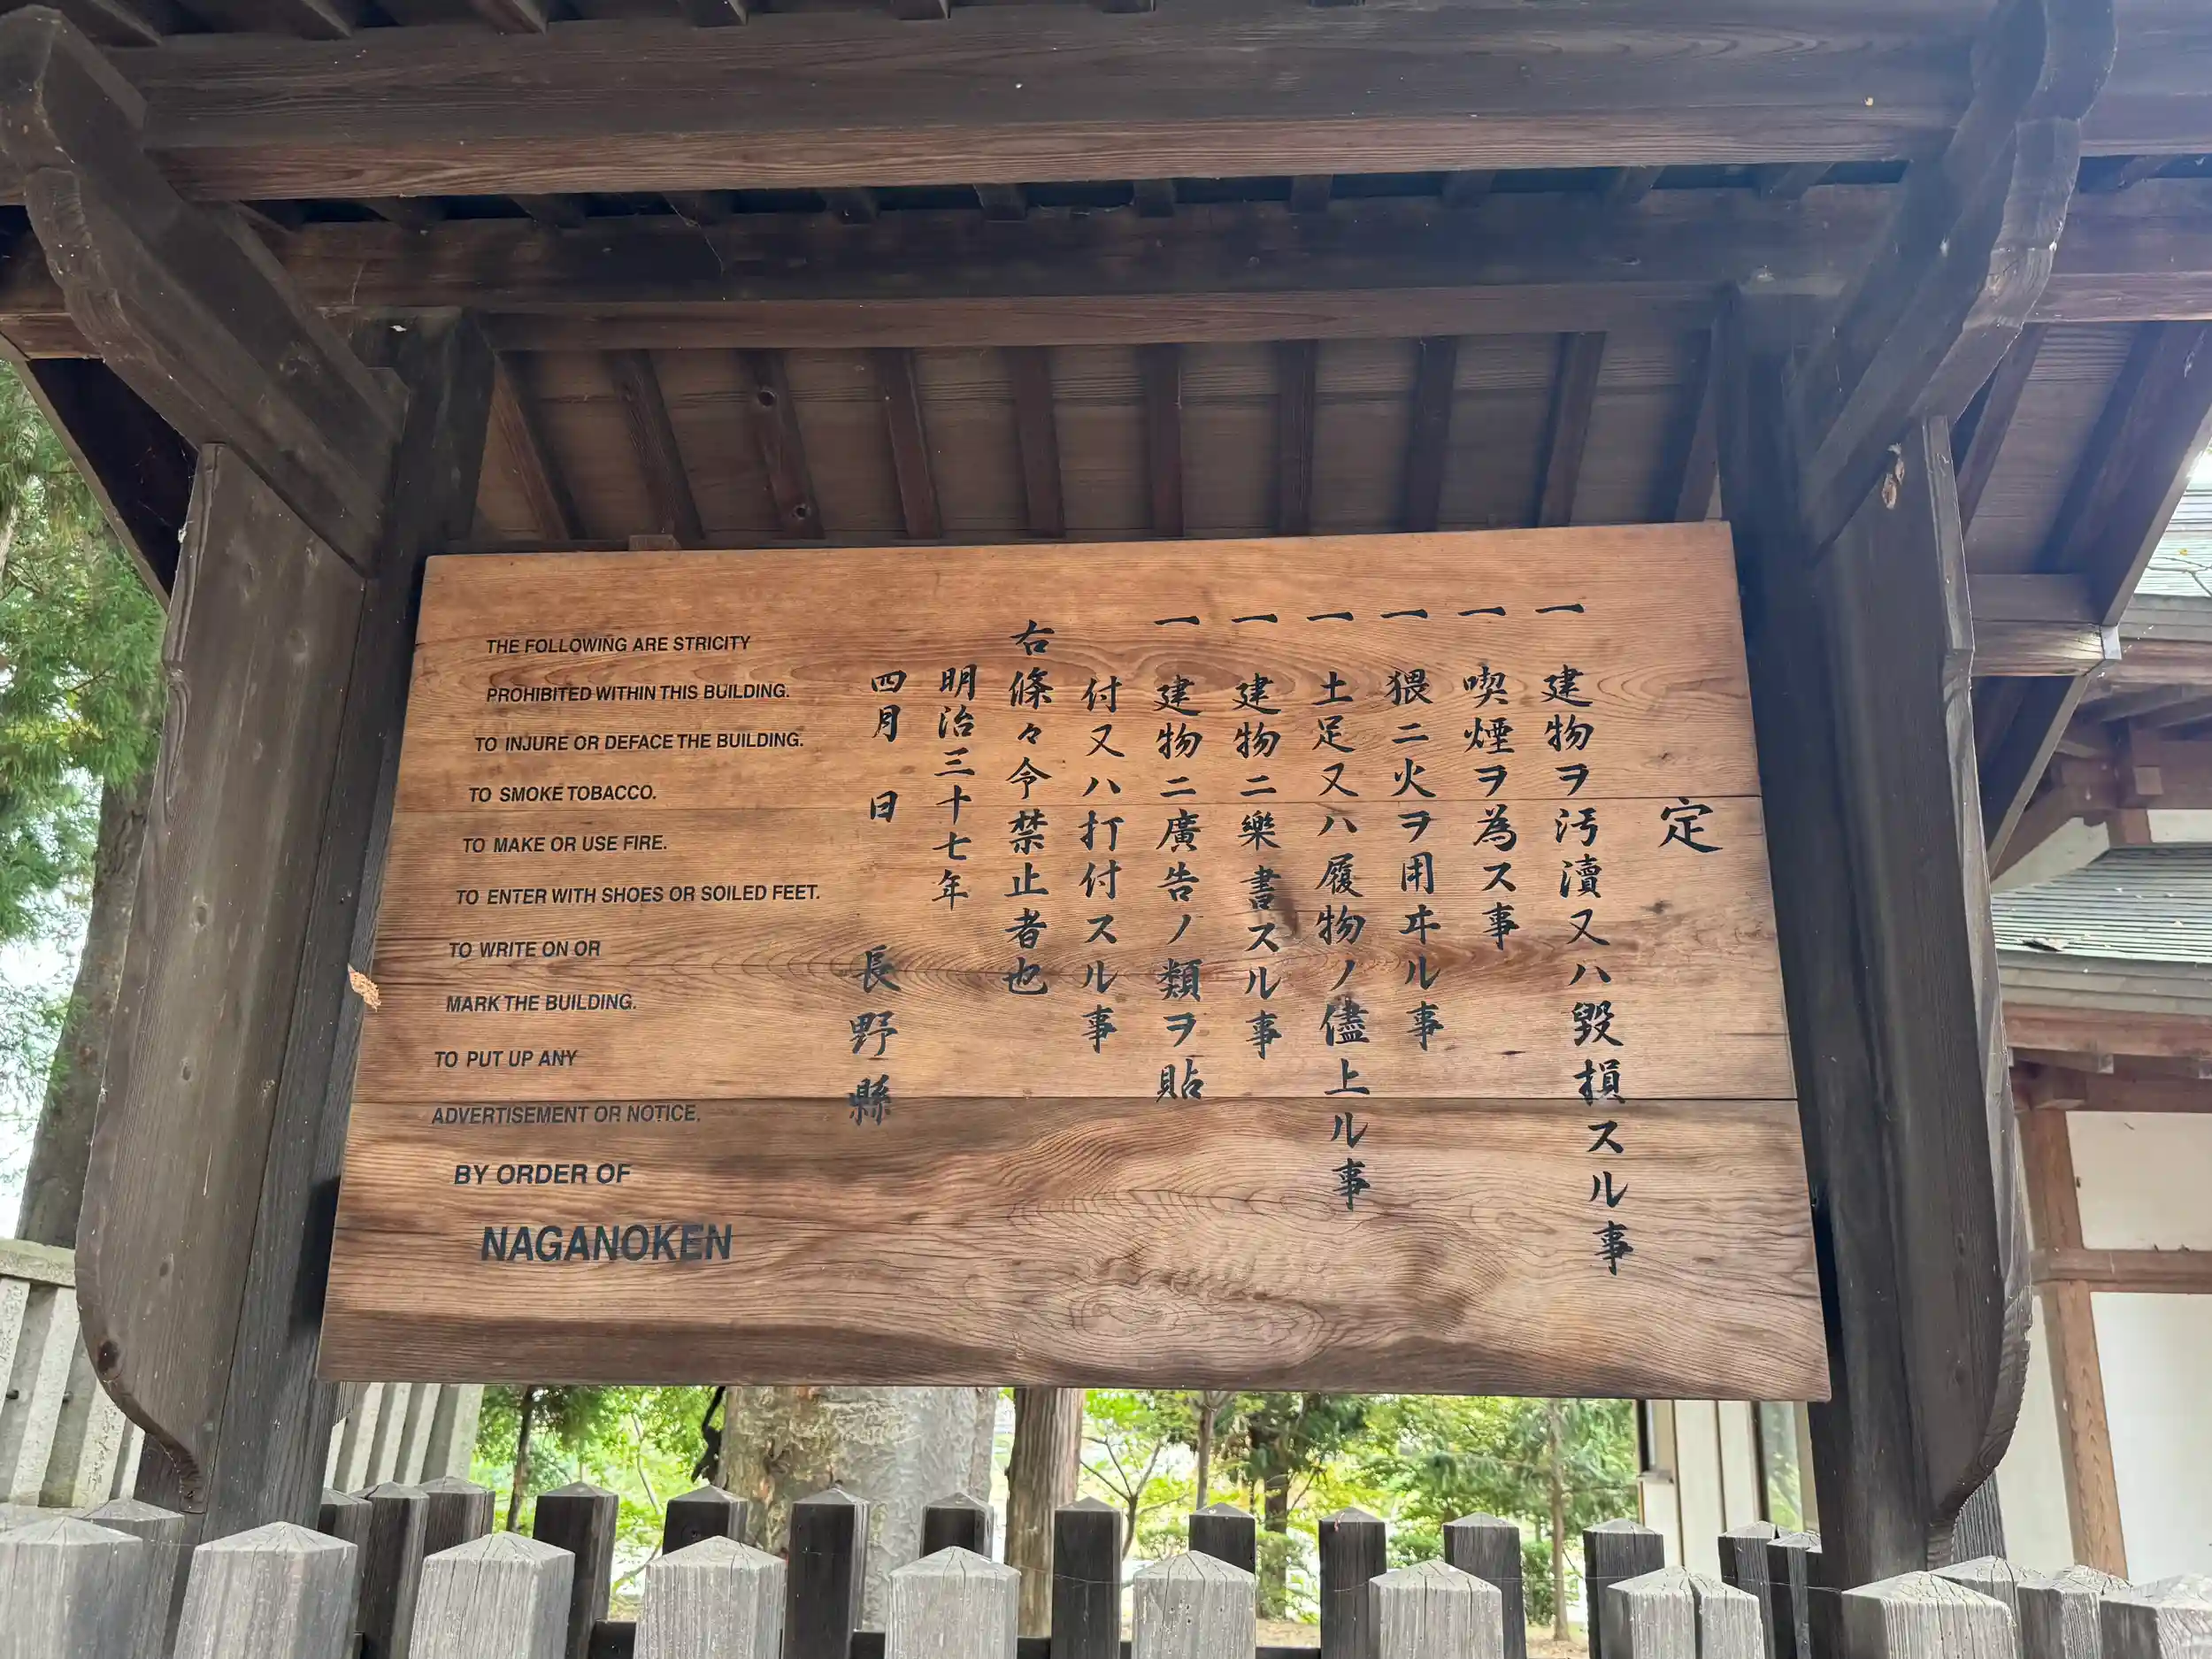 定
一 建物ヲ汚瀆又ハ毀損スル事
一 喫煙ヲ為ス事
一 猥ニ火ヲ用ヰル事
一 土足又ハ履物ノ儘上ル事
一 建物ニ樂書スル事
一 建物ニ廣告ノ類ヲ貼
付又ハ打付スル事
右條々令禁止者也
明治三十七年
四月 日 長野縣
THE FOLLOWING ARE STRICITY
PROHIBITED WITHIN THIS BUILDING.
TO INJURE OR DEFACE THE BUILDING.
TO SMOKE TOBACCO.
TO MAKE OR USE FIRE.
TO ENTER WITH SHOES OR SOILED FEET.
TO WRITE ON OR
MARK THE BUILDING.
TO PUT UP ANY
ADVERTISEMENT OR NOTICE.
BY ORDER OF
NAGANOKEN